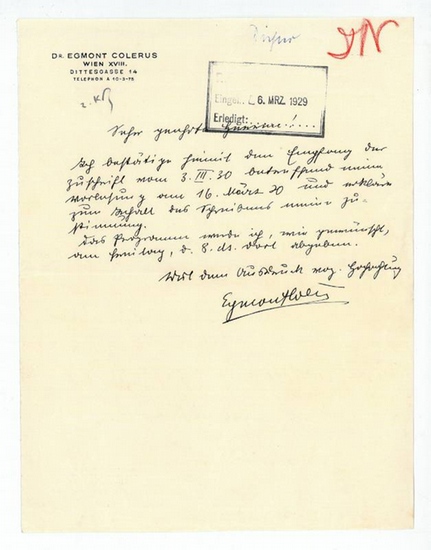 DR. EGMONT COLERUS
WIEN XVIII.
DITTESGASSE 14
TELEPHON A 10-3-75
JN
z. Kß
Einge 6. MRZ. 1929
Erledigt:
Sehr geehrte Herren!...
Ich bestätige hiemit den Empfang der
Zuschrift vom 3. III. 30 betreffend meine
Vorlesung am 16. März 30 und erkläre
zum Inhalt des Schreibens meine Zu-
stimmung.
Das Programm werde ich, wie gewünscht,
am Freitag, d. 8. ds. dort abgeben.
Mit dem Ausdruck vorz. Hochachtung
Egmont Colerus